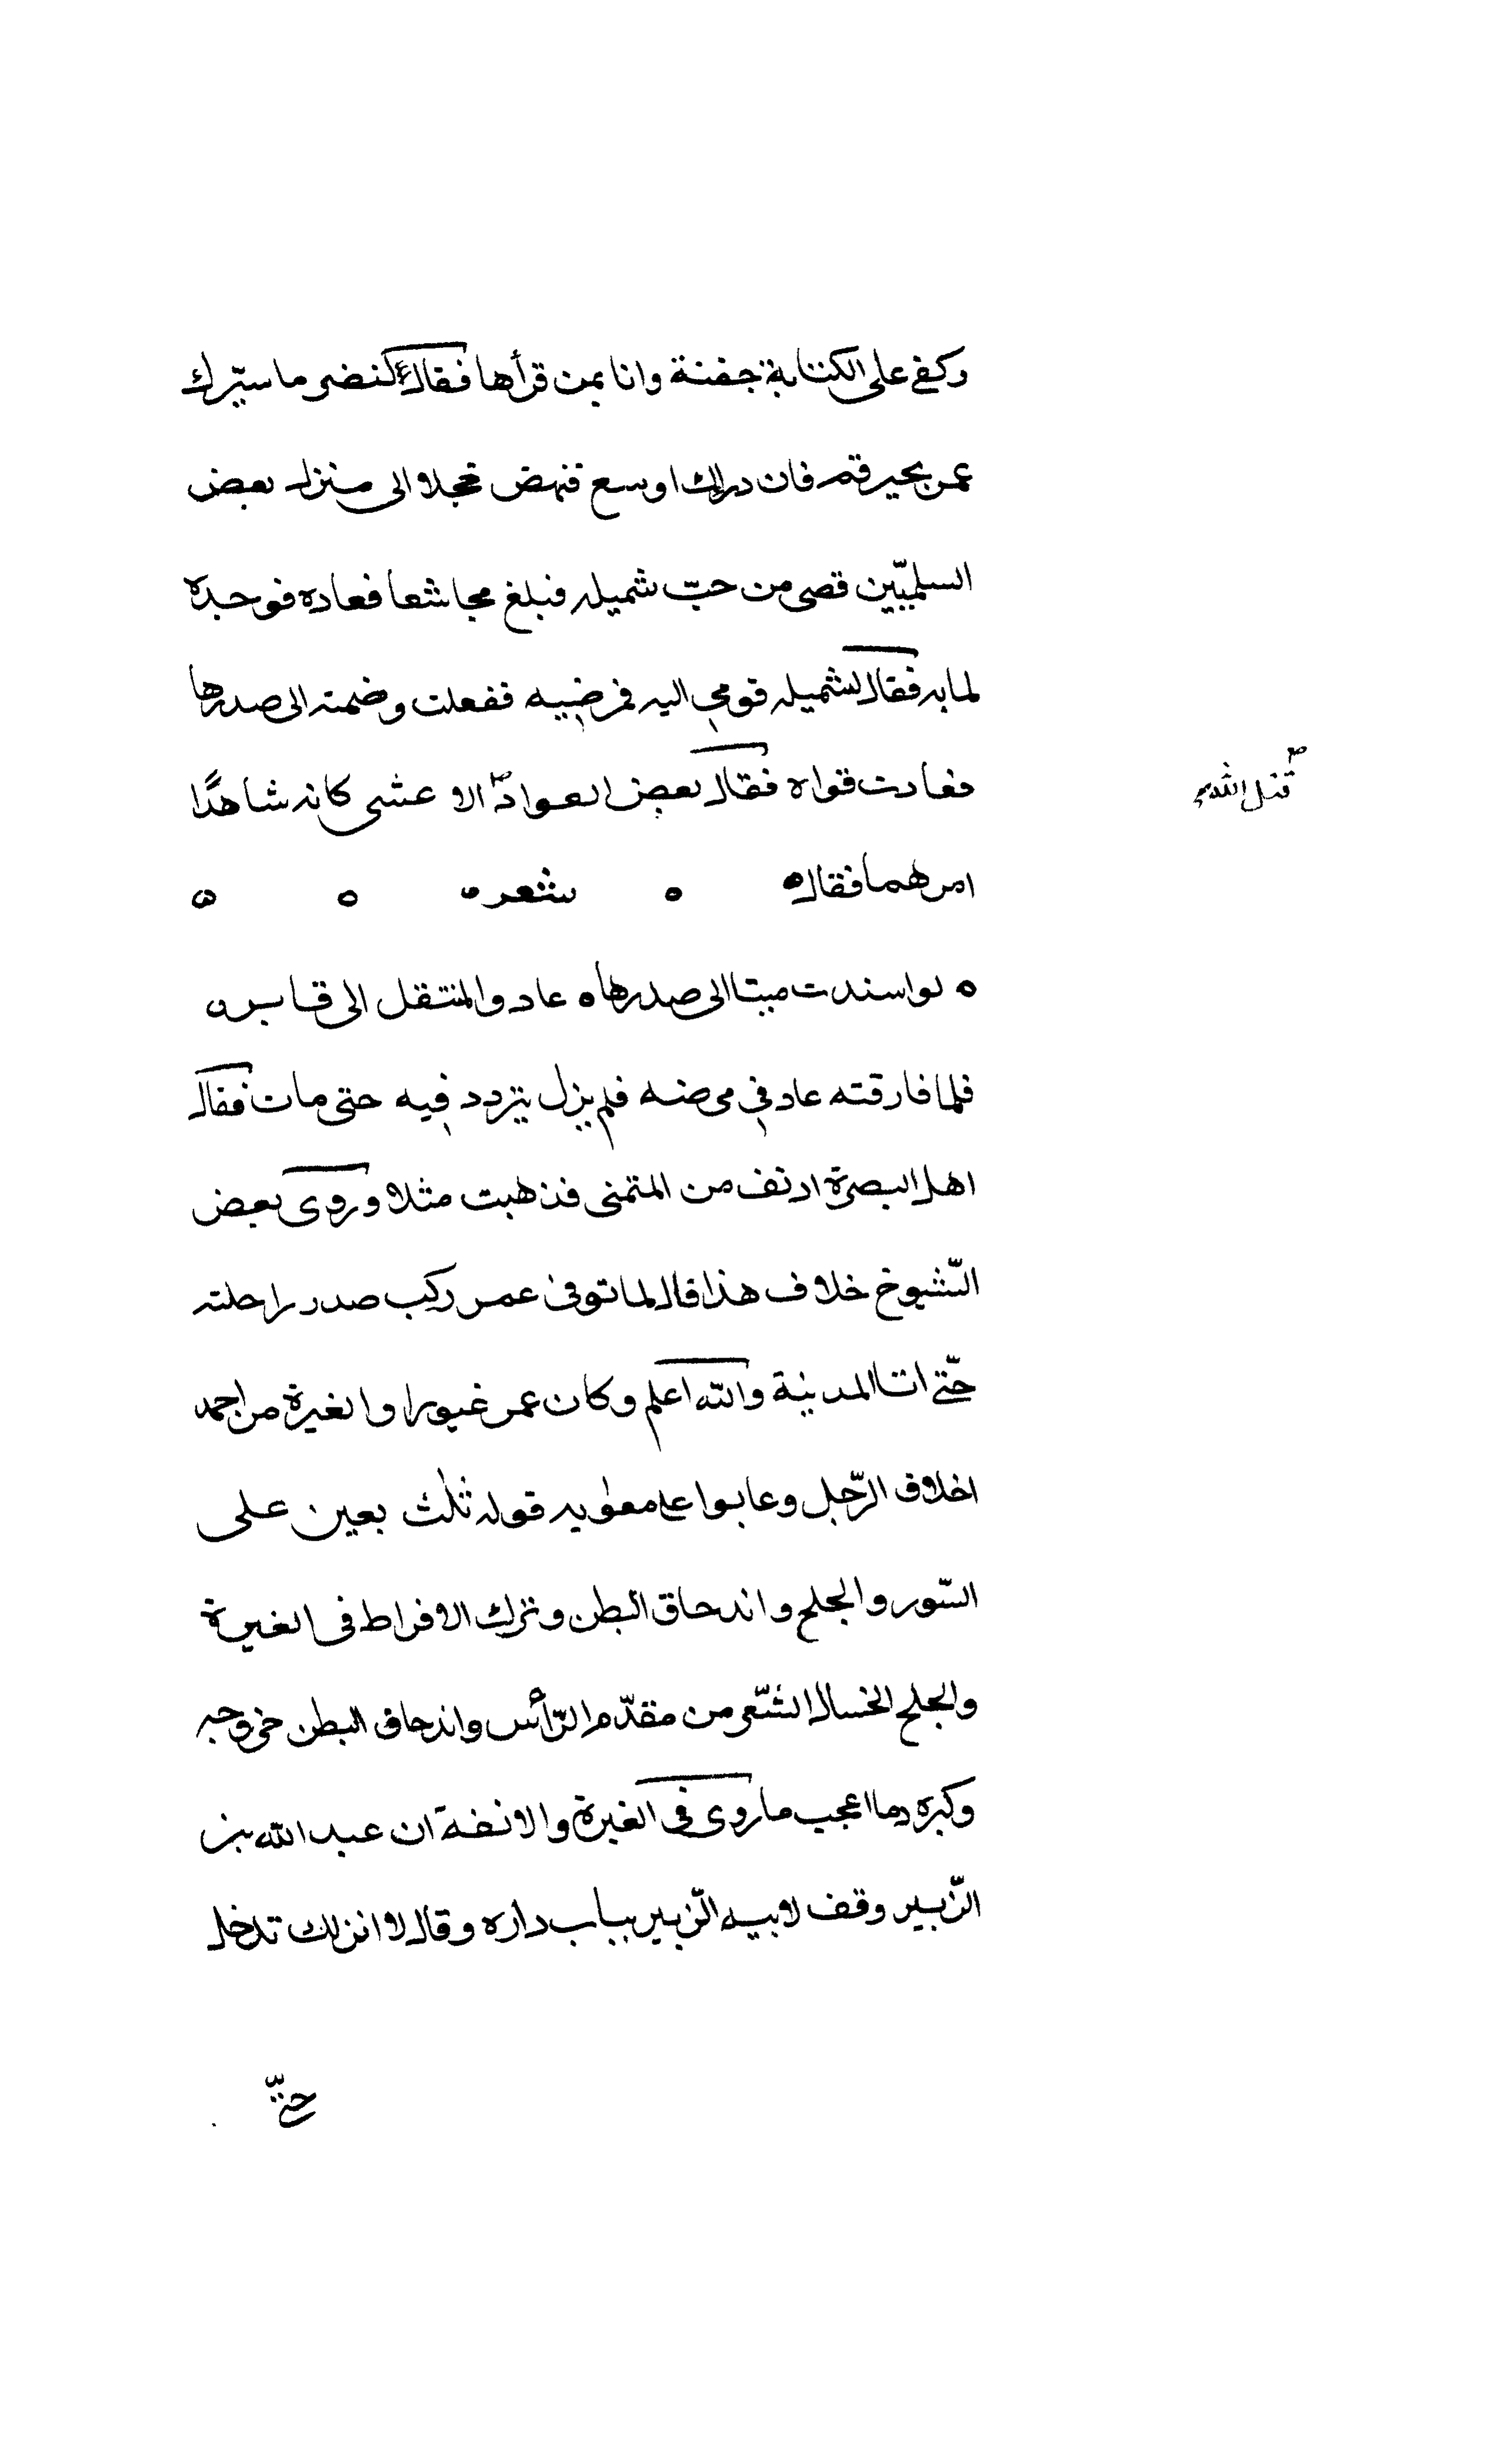 وكفى على الكتابة جفنة وانا بمن قرأها فقال لنضر ما سيّرك
عمن بحير قم فان دراك اوسع فنهض فحجلا الى منزل بعض
السلميّين قصى من حبّ شميله فبلغ مجاشعا فعاده فوجده
لما به فقال لشميله قومى اليه فمرضيه ففعلت وضمته الى صدرها
فعادت قواه فقال بعض العواد الاعشى كانه شاهدًا
قتل الله
امرهما فقال شعر
لو اسندت ميتا الى صدرها عاد والمنتقل الى قابر
فلما فارقته عاد فى مرضه فلم يزل يتردد فيه حتى مات فقال
اهل البصرة ادنف من المتمنى فذهبت مثلا وروى بعض
الشّيوخ خلاف هذا قال لما توفى عمر ركب صدر راحلته
حتّى اتا المدينة والله اعلم وكان عمر غيورا والغيرة من احمد
اخلاق الرّجل وعابوا على معٰويه قوله ثلٰث بعين على
السّور والجلح واندحاق البطن وترك الافراط فى الغيرة
والجلح انخسال الشّعر من مقدّم الرّأس واندحاق البطن خروجه
وكبره وما اعجب ما روى فى الغيرة والانفة ان عبد الله بن
الزّبير وقف لابيه الزّبير بباب داره وقال لا انزلك تدخل
حتّى